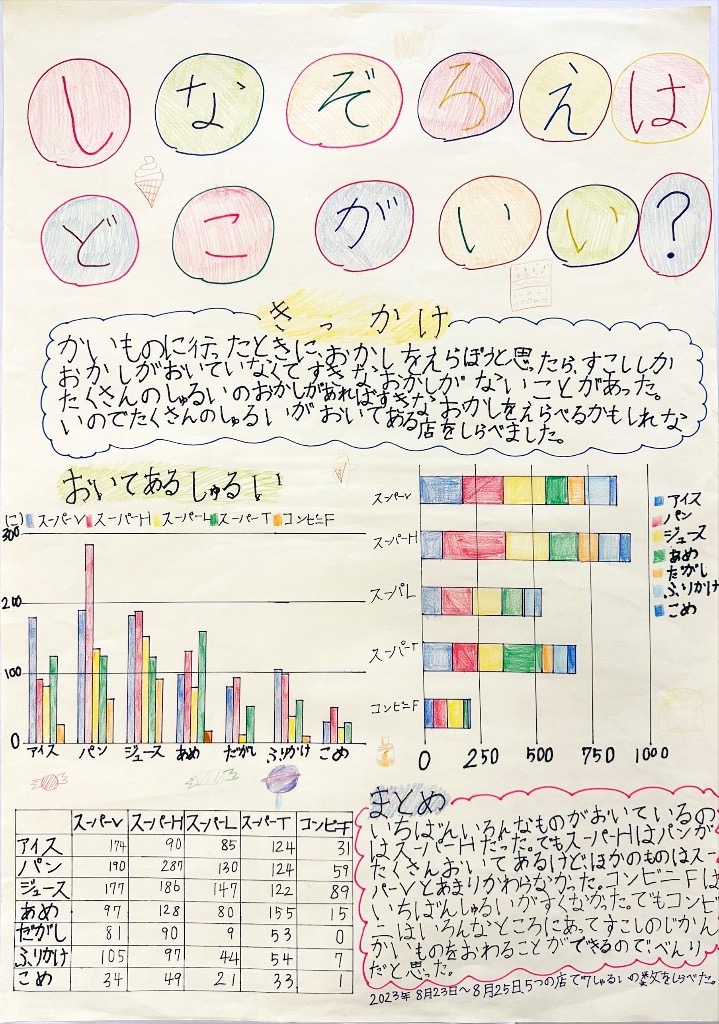 しなぞろえは
どこがいい?
きっかけ
かいものに行ったときに、おかしをえらぼうと思ったら、すこししか
おかしがおいていなくてすきなおかしがないことがあった。
たくさんのしゅるいのおかしがあればすきなおかしをえらべるかもしれな
いのでたくさんのしゅるいがおいてある店をしらべました。
おいてあるしゅるい
(こ) スーパーV スーパーH スーパーL スーパーT コンビニF
300
200
100
0
アイス パン ジュース あめ だがし ふりかけ こめ
スーパーV
スーパーH
スーパーL
スーパーT
コンビニF
0 250 500 750 1000
アイス
パン
ジュース
あめ
だがし
ふりかけ
こめ
スーパーV スーパーH スーパーL スーパーT コンビニF
アイス 174 90 85 124 31
パン 190 287 130 124 59
ジュース 177 186 147 122 89
あめ 97 128 80 155 15
だがし 81 90 9 53 0
ふりかけ 105 97 44 54 7
こめ 34 49 21 33 1
まとめ
いちばんいろんなものがおいているの
はスーパーHだった。でもスーパーHはパンが
たくさんおいてあるけどほかのものはスー
パーVとあまりかわらなかった。コンビニFは
いちばんしゅるいがすくなかった。でもコンビ
ニはいろんなところにあってすこしのじかん
かいものをおわることができるので、べんり
だと思った。
2023年8月23日〜8月25日、5つの店で7しゅるいの数をしらべた。